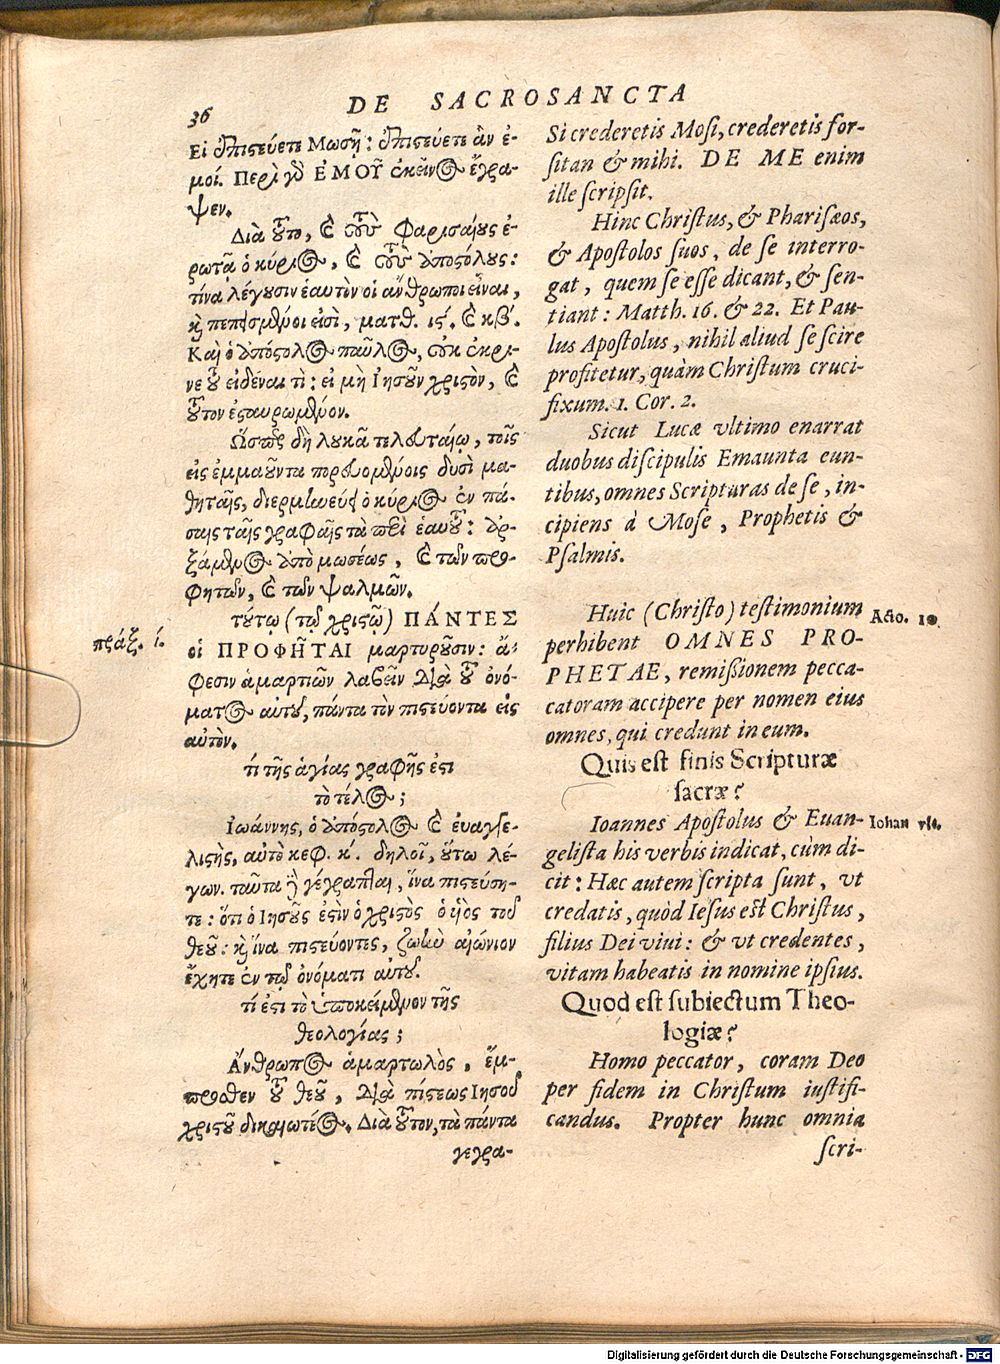 36
DE SACROSANCTA
Εἰ ἐπιστεύετε Μωσῇ: ἐπιστεύετε ἂν ἐ-
μοί. Περὶ γὸ ἘΜΟΥ͂ ἐκεῖνος ἔγρα-
ψεν.
Διὰ τοῦτο, καὶ τοὺς Φαρισαίους ἐ-
ρωτᾷ ὁ κύριος, καὶ τοὺς ἀποστόλους:
τίνα λέγουσιν ἑαυτὸν οἱ ἄνθρωποι εἶναι,
καὶ πεπεισμένοι εἰσὶ, ματθ. ις´. καὶ κβ´.
Καὶ ὁ ἀπόστολος παῦλος, οὐκ ἐκρι-
νε τοῦ εἰδέναι τὶ: εἰ μὴ Ἰησοῦν χριστὸν, καὶ
τοῦτον ἐσταυρωμένον.
Ὥσπερ δὴ λουκᾶ τελευταίῳ, τοῖς
εἰς ἐμμαοῦντα πορευομένοις δυσὶ μα-
θηταῖς, διερμηνεύει ὁ κύριος ἐν πά-
σαις ταῖς γραφαῖς τὰ περὶ ἑαυτοῦ: ἀρ-
ξάμενος ἀπὸ μωσέως, καὶ τῶν προ-
φητῶν, καὶ τῶν ψαλμῶν.
τούτῳ (τῷ χριστῷ) ΠΆΝΤΕΣ
πράξ. ί.
οἱ ΠΡΟΦΗ͂ΤΑΙ μαρτυροῦσιν: ἄ-
φεσιν ἁμαρτιῶν λαβεῖν διὰ τοῦ ὀνό-
ματος αὐτοῦ, πάντα τὸν πιστεύοντα εἰς
αὐτόν.
τί τῆς ἁγίας γραφῆς ἐστι
τὸ τέλος;
Ἰωάννης, ὁ ἀπόστολος καὶ ἐυαγγε-
λιστὴς, αὐτὸ κεφ. κ´. δηλοῖ, οὕτω λέ-
γων. ταῦτα δὲ γέγραπται, ἵνα πιστεύση-
τε: ὅτι ὁ Ἰησοῦς ἐστὶν ὁ χριστὸς ὁ υἱὸς τοῦ
θεοῦ: καὶ ἵνα πιστεύοντες, ζωὴν αἰώνιον
ἔχητε ἐν τῷ ὀνόματι αὐτοῦ.
τί ἐστι τὸ ὑποκείμενον τῆς
θεολογίας;
Ἄνθρωπος ἁμαρτωλὸς, ἔμ-
προσθεν τοῦ θεοῦ, διὰ πίστεως Ἰησοῦ
χριστοῦ δικαιωτέος. Διὰ τοῦτον, τὰ πάντα
γεγρα-
Si crederetis Mosi, crederetis for-
sitan & mihi. DE ME enim
ille scripsit.
Hinc Christus, & Pharisæos,
& Apostolos suos, de se interro-
gat, quem se esse dicant, & sen-
tiant: Matth. 16. & 22. Et Pau-
lus Apostolus, nihil aliud se scire
profitetur, quàm Christum cruci-
fixum. 1. Cor. 2.
Sicut Lucæ vltimo enarrat
duobus discipulis Emaunta eun-
tibus, omnes Scripturas de se, in-
cipiens à Mose, Prophetis &
Psalmis.
Huic (Christo) testimonium
Acto. 10.
perhibent OMNES PRO-
PHETAE, remißionem pecca-
catoram accipere per nomen eius
omnes, qui credunt in eum.
Quis est finis Scripturæ
sacræ?
Ioannes Apostolus & Euan-
Iohan vlt.
gelista his verbis indicat, cùm di-
cit: Hæc autem scripta sunt, vt
credatis, quòd Iesus est Christus,
filius Dei viui: & vt credentes,
vitam habeatis in nomine ipsius.
Quod est subiectum Theo-
logiæ?
Homo peccator, coram Deo
per fidem in Christum iustifi-
candus. Propter hunc omnia
scri-
Digitalisierung gefördert durch die Deutsche Forschungsgemeinschaft - DFG